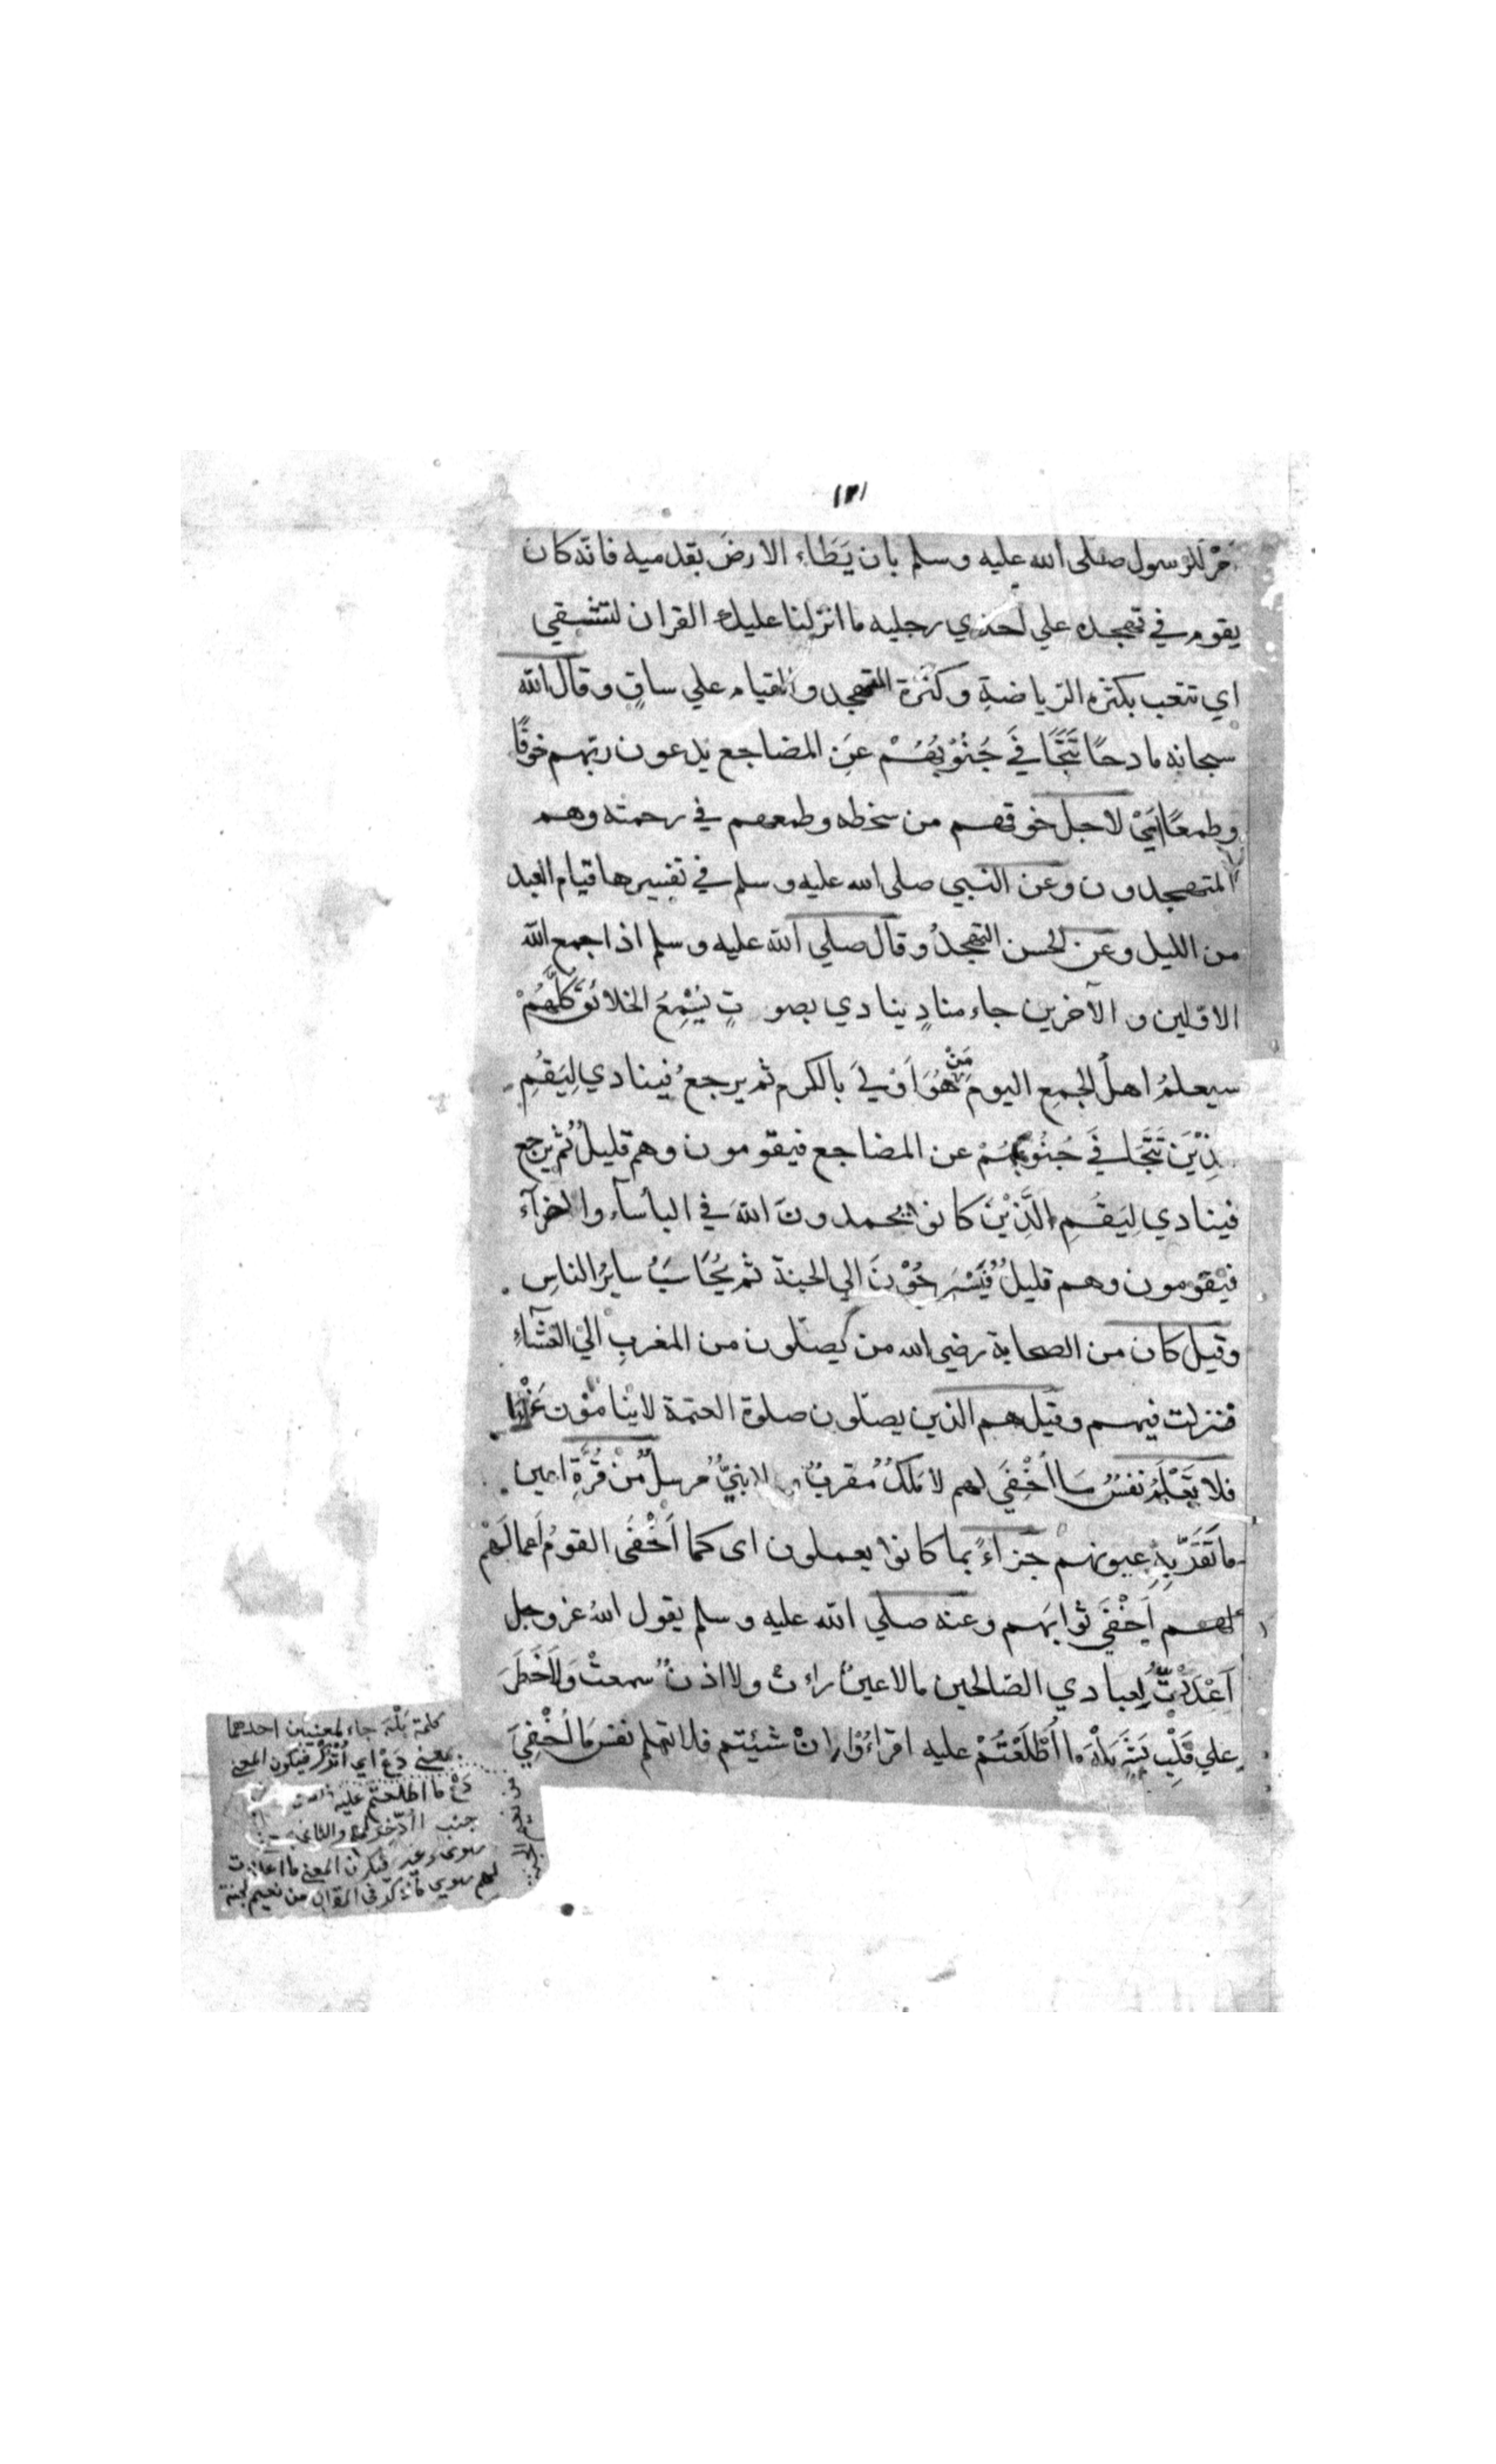 امر للرسول صلى الله عليه وسلم بان يَطَاء الارضَ بقدميه فانّه كان
يقوم في تهجده علي احدي رجليه ما انزلنا عليك القران لتشقي
اي تتعب بكثره الرياضةِ وكثرة التهجد والقيام علي ساقٍ وقال الله
سبحانه مادحًا تَتَجَافَي جُنُوبُهُمْ عَنِ المضاجع يدعون ربّهم خوفًا
وطمعًا اَيْ لاجل خوفهم من سخطه وطمعهم في رحمته وهم
المتهجدون وعن النبي صلى الله عليه وسلم في تفسيرها قيام العبد
من الليل وعن الحسن التهجدُ وقال صلي الله عليه وسلم اذا جمع الله
الاوّلين والآخرين جاء منادٍ ينادي بصوتٍ يُسْمِعُ الخلائقَ كلَّهُمْ
سيعلمُ اهلُ الجمعِ اليومَ مَنْ هُوَ اَوْلَي بالكرم ثم يرجعُ فينادي لِيَقُمِ
الَّذِيْنَ تَتَجَافَي جُنُوبُهُمْ عن المضاجع فيقومون وهم قليلٌ ثم يرجع
فينادي لِيَقُمِ الَّذِيْنَ كانوا يحمدونَ اللهَ في البأسآء والضرآء
فيقومون وهم قليلٌ فَيُسْرَحُوْنَ الي الجنة ثم يُحَاسَبُ سايرُ الناسِ
وقيل كان من الصحابة رضى الله من يصلّون من المغربِ الي العشآءِ
فنزلت فيهم وقيل هم الذين يصلّون صلوة العتمة لا ينامُوْن عَنْهَا
فلا تَعْلَمُ نفسٌ مَا اُخْفِيَ لهم لا مَلَكٌ مُقربٌ ولا نبيٌّ مرسلٌ مِنْ قُرَّةِ اعين
ما تَقَرُّ بِهِ عيونهم جزاءً بما كانوا يعملون اى كما اَخْفَى القومُ اَعمالَهُمْ
لهم اُخْفِيَ ثوابَهم وعنه صلي الله عليه وسلم يقول اللهُ عز وجل
اَعْدَدْتُ لِعبادي الصّالحين ما لا عينٌ راءت ولا اذنٌ سمعتْ وَلَا خَطَرَ
علي قَلْبِ بَشَرٍ بَلْهَ ما اُطْلَعْتُمْ عليه اقراءُوْا اِنْ شئيتم فلا تعلم نفس مَا اُخْفِيَ
كلمة بَلْهَ جاء لمعنيين احدهما
بمعني دعْ اي اُتْرُكْ فيكون المعني
دَعْ ما اطلعتم عليه
جنب ما ادّخر لهم والثاني
سوى وغير فيكون المعني ما اعددت
لهم سوي ما ذكر في القران من نعيم الجنة